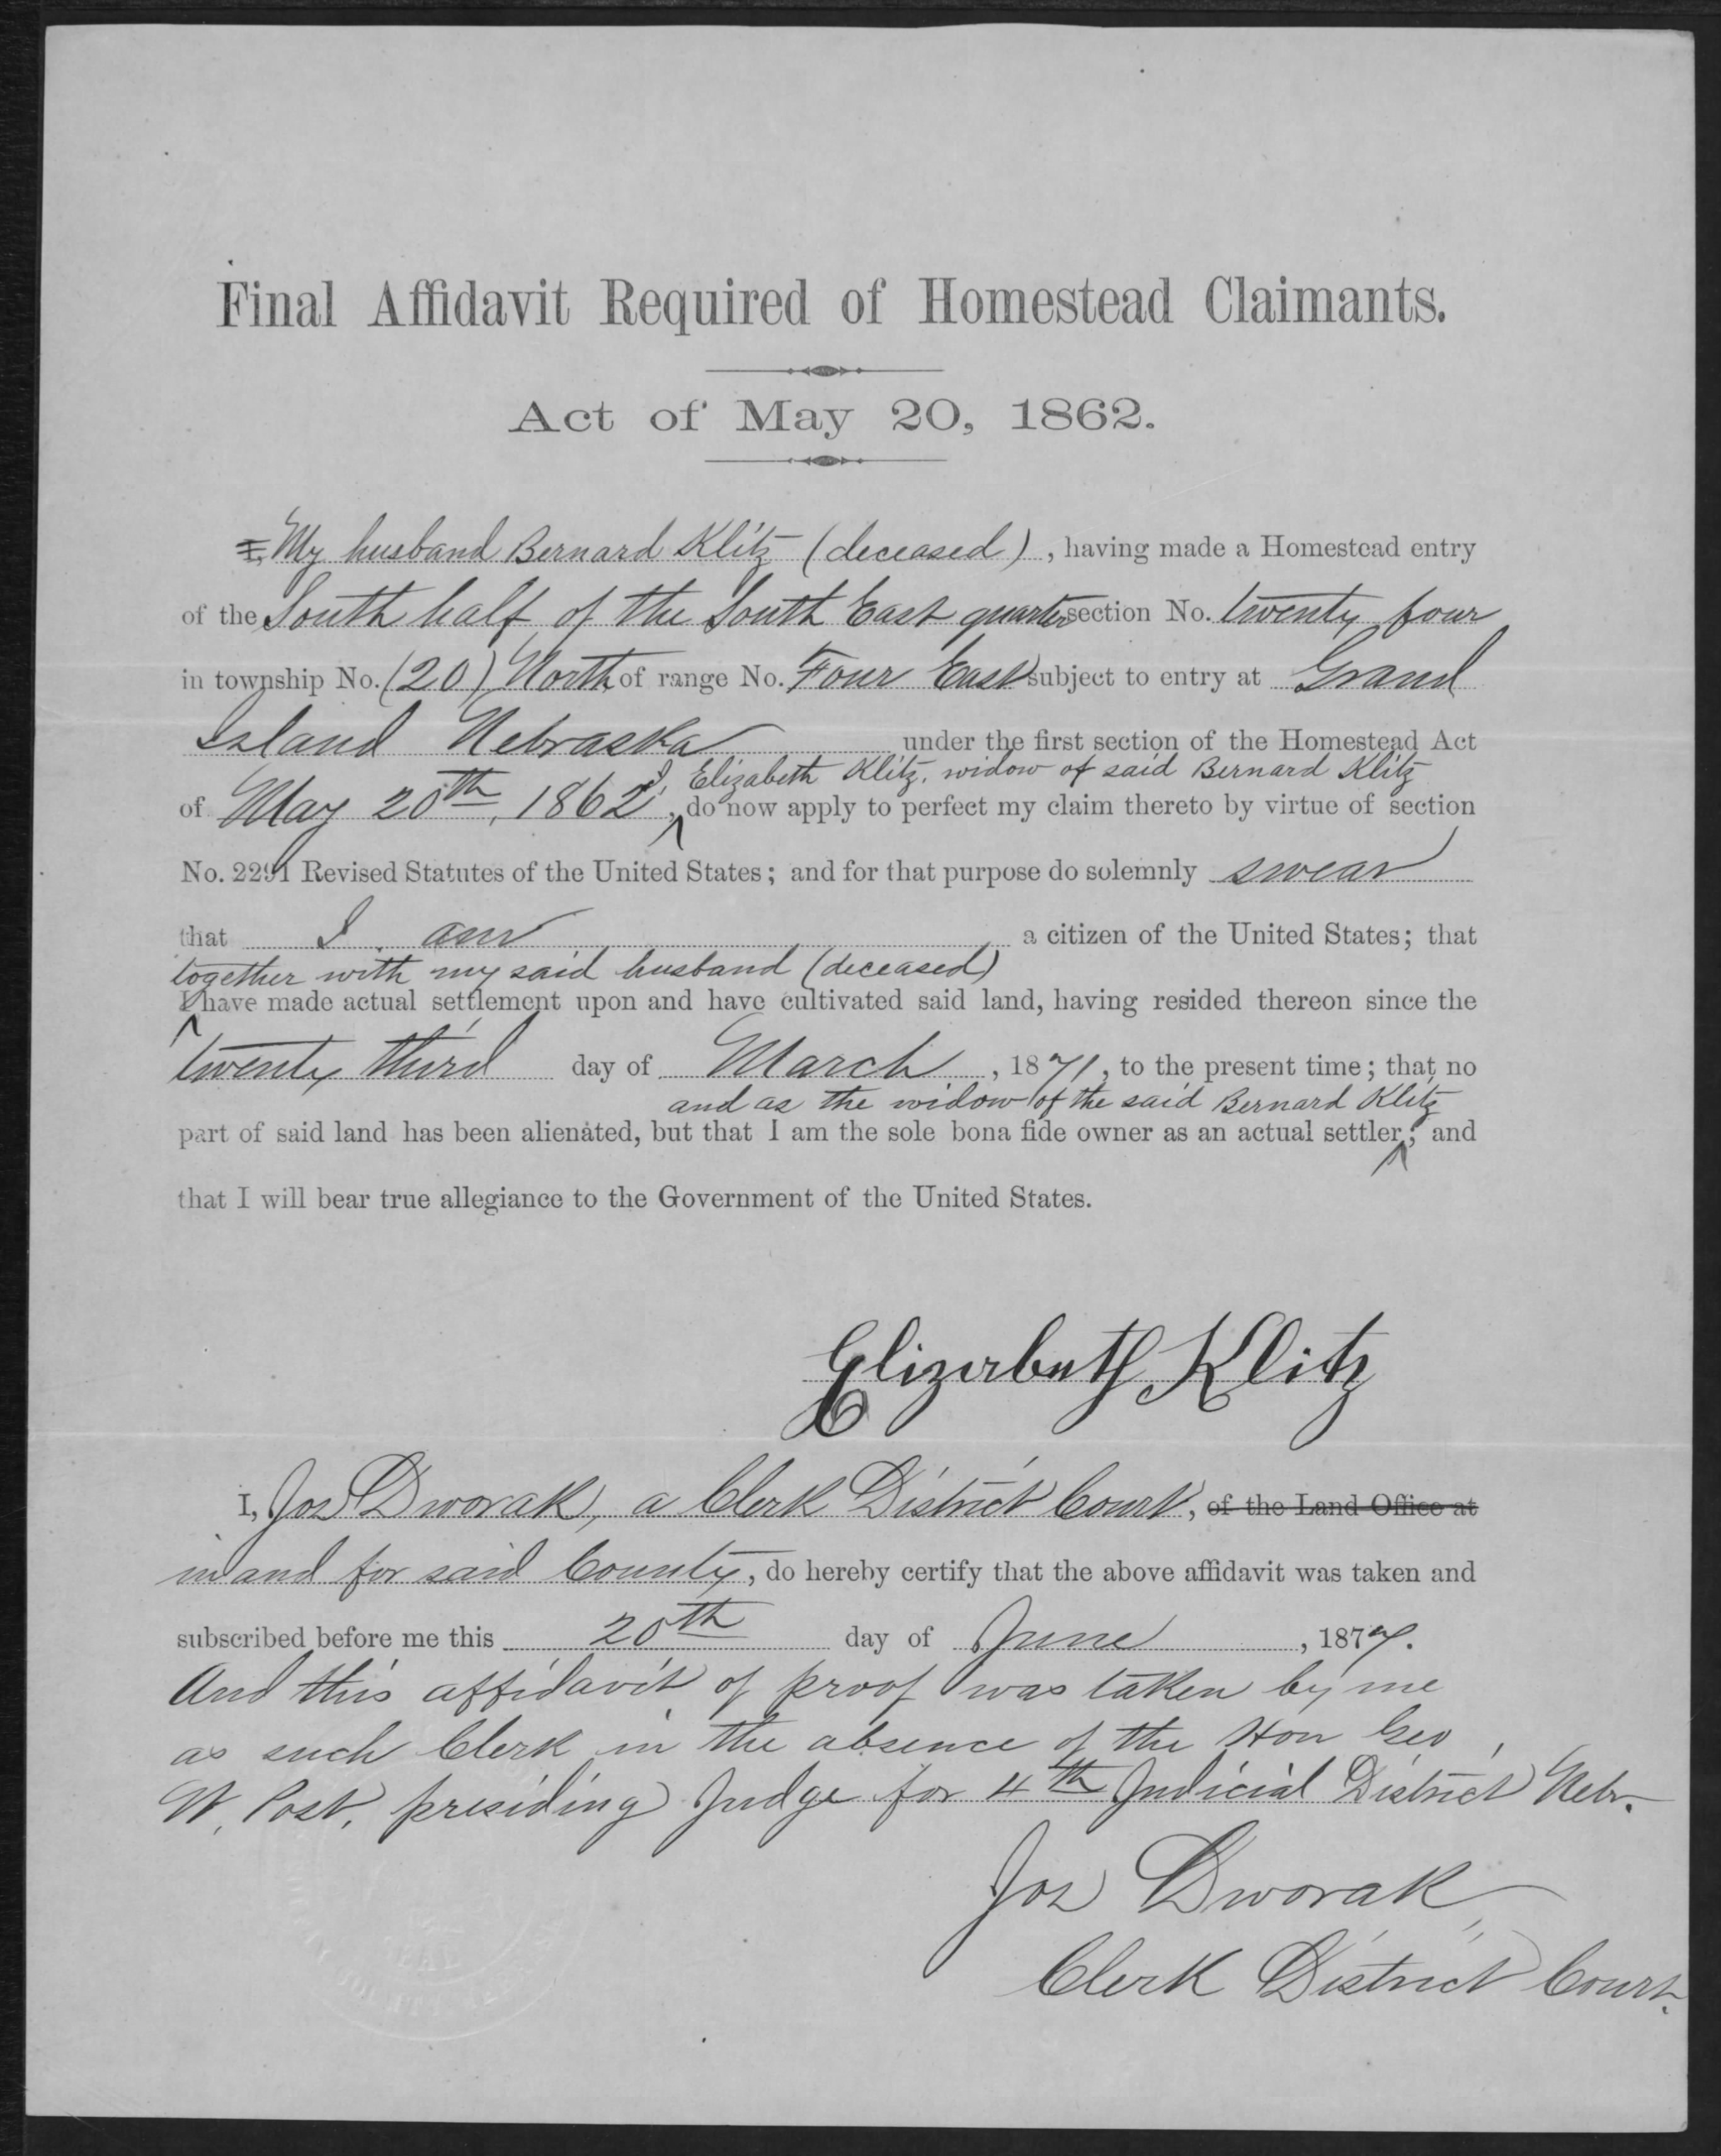 Final Affidavit Required of Homestead Claimants.
Act of May 20, 1862.
I, My husband Bernard Klitz (deceased), having made a Homestead entry
of the South half of the South East quarter section No. twenty four
in township No. (20) North of range No. Four East subject to entry at Grand
Island Nebraska under the first section of the Homestead Act
I, Elizabeth Klitz, widow of said Bernard Klitz
of May 20th, 1862, do now apply to perfect my claim thereto by virtue of section
No. 2291 Revised Statutes of the United States; and for that purpose do solemnly swear
that I am a citizen of the United States; that
together with my said husband (deceased)
I have made actual settlement upon and have cultivated said land, having resided thereon since the
twenty third day of March, 1871, to the present time; that no
and as the widow of the said Bernard Klitz
part of said land has been alienated, but that I am the sole bona fide owner as an actual settler; and
that I will bear true allegiance to the Government of the United States.
Elizabeth Klitz
I, Jos Dworak, a Clerk District Court, of the Land Office at
in and for said County, do hereby certify that the above affidavit was taken and
subscribed before me this 20th day of June, 1877.
And this affidavit of proof was taken by me
as such Clerk in the absence of the Hon Geo
W. Post, presiding Judge for 4th Judicial District Nebr.
Jos Dworak
Clerk District Court.
SEAL